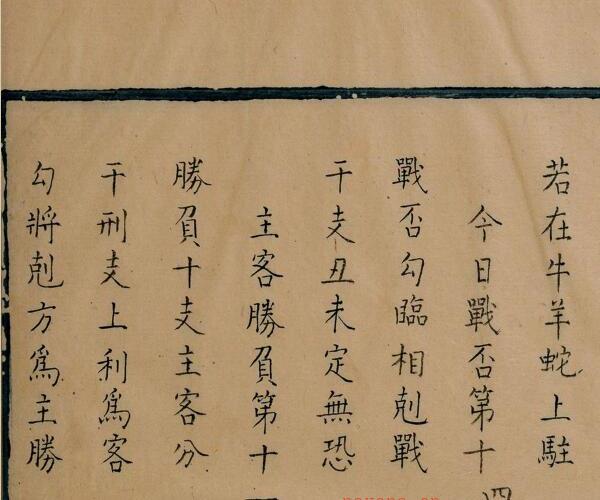 若在牛羊蛇上駐
今日戰否第十四
戰否勾臨相剋戰
干支丑未定無恐
主客勝負第十
勝負十支主客分
干刑支上利為客
勾將剋方為主勝